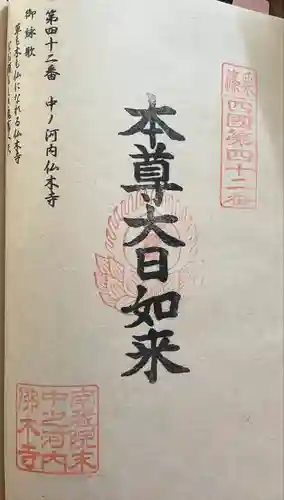 四國第四十二番
本尊大日如来
第四十二番 中ノ河内仏木寺
御詠歌
草も木も仏になれる仏木寺
中之河内
佛木寺